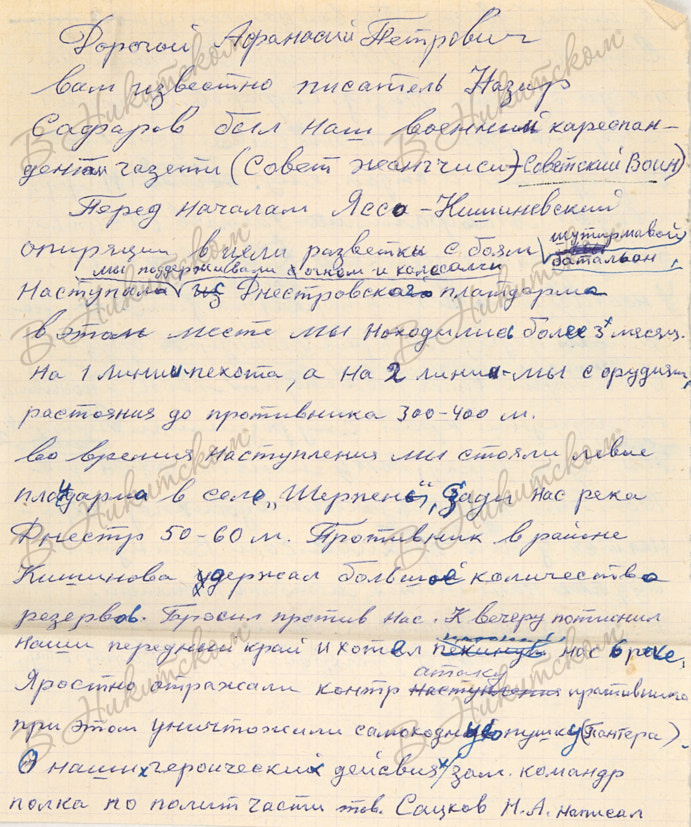 Дорогой Афанасий Петрович
вам известно писатель Назир
Сафаров был наш военний кареспан-
дентом газети (Совет жангчиси-Советский Воин)
Перед началам Яссо-Кишиневский
опиряции в цели разветки с боям штурмавой
батальон,
мы поддерживали огнком и колосалси
Наступала из Днестровского пладарма
в этом месте мы находились более 3х месяц.
на 1 линии-пехота, а на 2 линии-мы с орудиям,
растояния до противника 300-400 м.
во времия наступления мы стояли левие
плацдарма в селе „Шерпены", Зади нас река
Днестр 50-60 м. Противник в районе
Кишинова удержал большое количество
резервов. Бросил против нас. К вечеру потиснил
наши передный край и хотел нас в реке.
атаку
Яростно отражали контр наступления противника
при этом уничтожили самоходную пушку (Пантера).
О наших героических действиях зам. командр
полка по политчасти тов. Сацков Н.А. написал
В Никитском
В Никитском
В Никитском
В Никитском
В Никитском
В Никитском
В Никитском
В Никитском